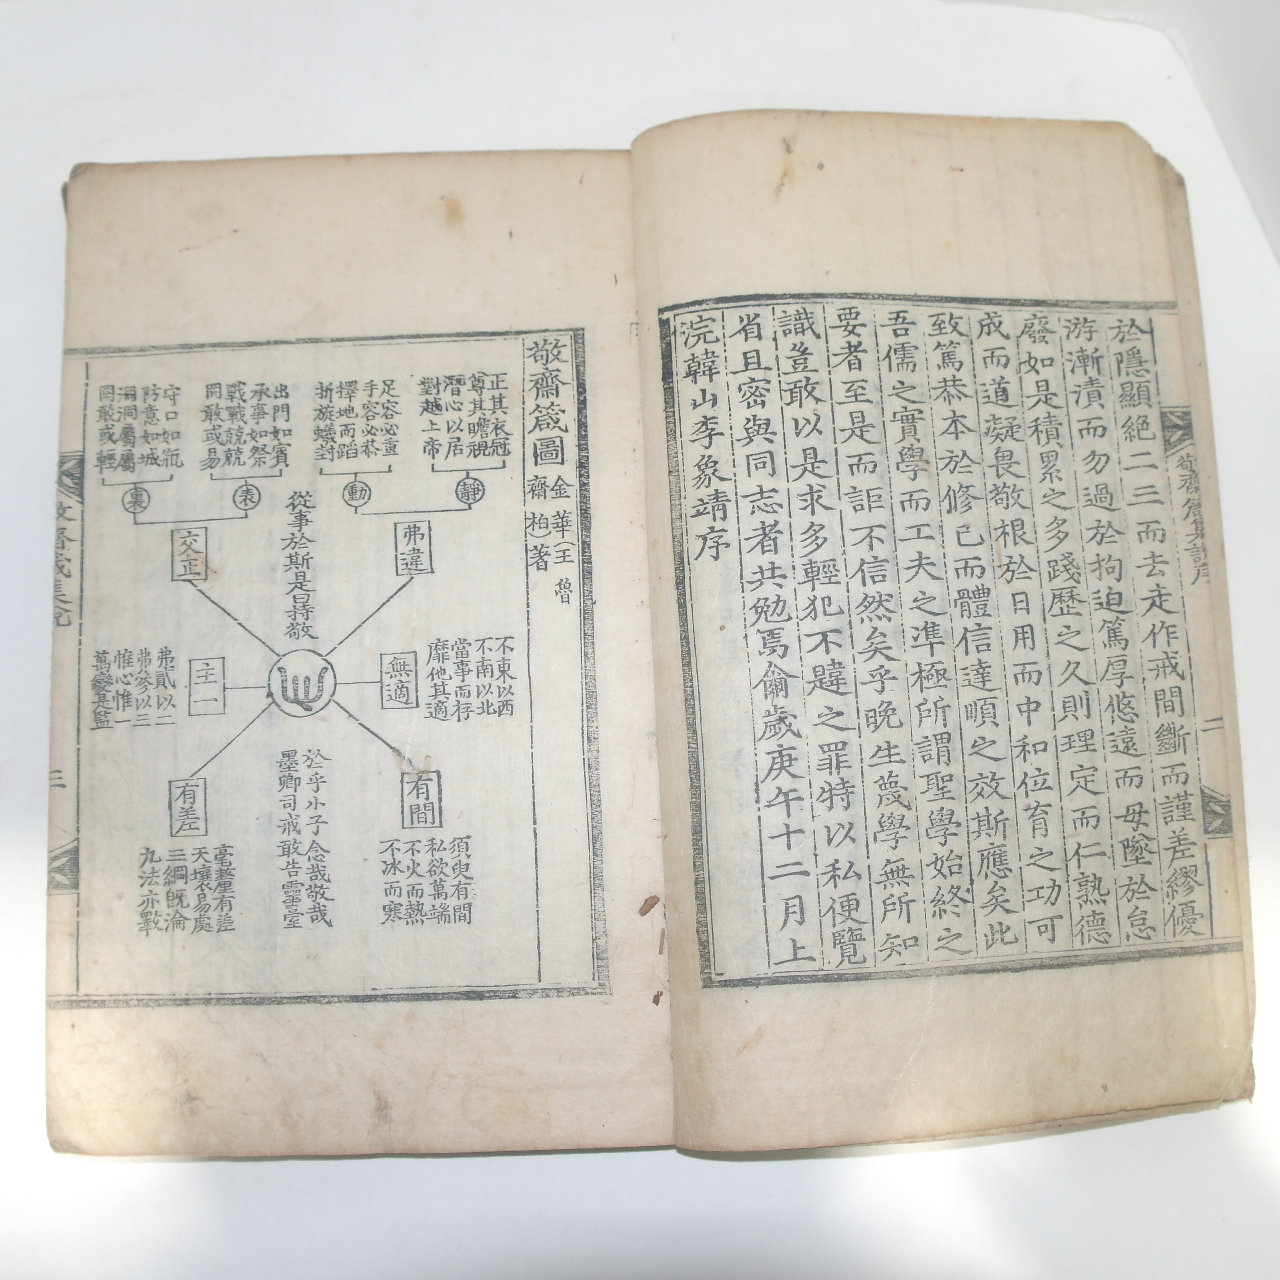 於隱顯絶二三而去走作戒間斷而謹差繆優
游漸漬而勿過於拘迫篤厚悠遠而毋墜於怠
廢如是積累之多踐歷之久則理定而仁熟德
成而道凝畏敬根於日用而中和位育之功可
致篤恭本於修己而體信達順之效斯應矣此
吾儒之實學而工夫之準極所謂聖學始終之
要者至是而詎不信然矣乎晚生蔑學無所知
識豈敢以是求多輕犯不韙之罪特以私便覽
省且密與同志者共勉焉爾歲庚午十二月上
浣韓山李象靖序
敬齋箴集說序
二
敬齋箴圖
金華王魯
齋柏著
正其衣冠
尊其瞻視
潛心以居
對越上帝
靜
足容必重
手容必恭
擇地而蹈
折旋蟻封
動
出門如賓
承事如祭
戰戰兢兢
罔敢或易
表
守口如瓶
防意如城
洞洞屬屬
罔敢或輕
裏
弗違
從事於斯是曰持敬
交正
不東以西
不南以北
當事而存
靡他其適
無適
心
主一
弗貳以二
弗參以三
惟心惟一
萬變是監
有間
須臾有間
私欲萬端
不火而熱
不冰而寒
於乎小子念哉敬哉
墨卿司戒敢告靈臺
有差
毫釐有差
天壤易處
三綱旣淪
九法亦斁
敬齋箴集說
三